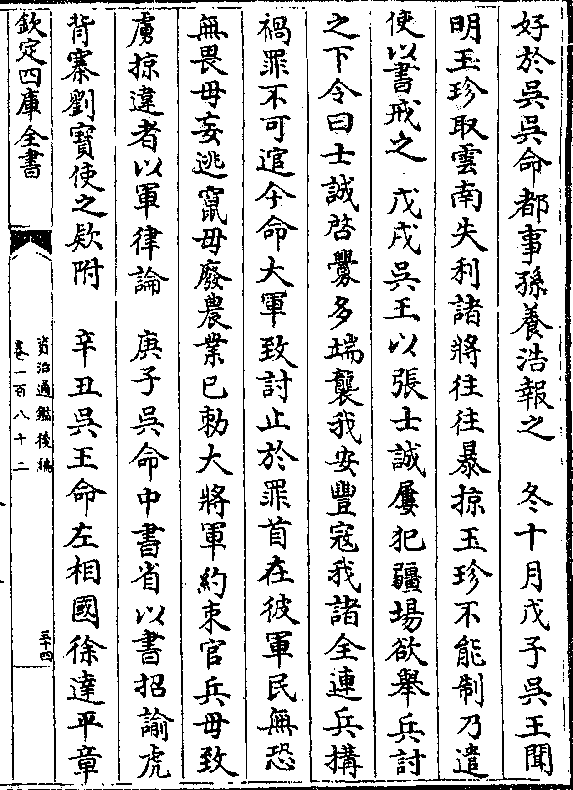 好於吳吳命都事孫養浩報之　冬十月戊子吳王聞
明玉珍取雲南失利諸將往往暴掠玉珍不能制乃遣
使以書戒之　戊戌吳王以張士誠屢犯疆場欲舉兵討
之下令曰士誠啓釁多端襲我安豐寇我諸全連兵搆
禍罪不可逭今命大軍致討止於罪首在彼軍民無恐
無畏毋妄逃竄毋廢農業已勅大將軍約束官兵毋致
虜掠違者以軍律論　庚子吳命中書省以書招諭虎
背寨劉寶使之欵附　辛丑吳王命左相國徐達平章
欽定四庫全書
資治通鑑後編
卷一百八十二
三十四